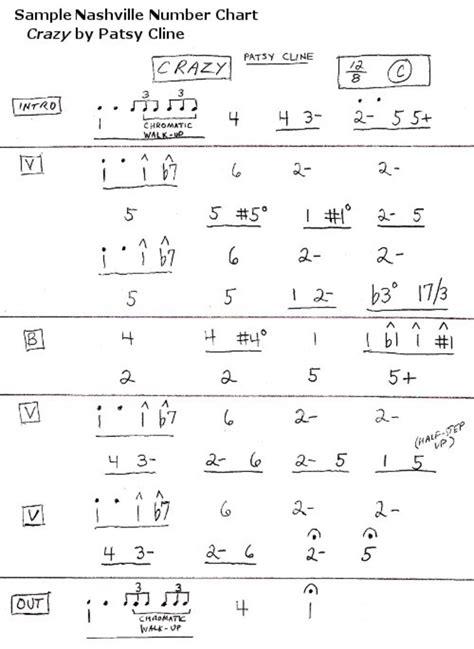 Sample Nashville Number Chart
Crazy by Patsy Cline
CRAZY PATSY CLINE 12/8 C
INTRO 1 3 3 CHROMATIC WALK-UP 4 4 3- 2- 5 5+
V 1 1 b7 6 2- 2-
5 5 #5° 1 #1° 2- 5
1 1 b7 6 2- 2-
5 5 1 2- b3° 17/3
B 4 4 #4° 1 1 b1 1 #1
2 2 5 5+
V 1 1 b7 6 2- 2-
4 3- 2- 6 2- 5 1 5 (HALF-STEP UP)
V 1 1 b7 6 2- 2-
4 3- 2- 6 2- 5
OUT 1 3 3 CHROMATIC WALK-UP 4 1